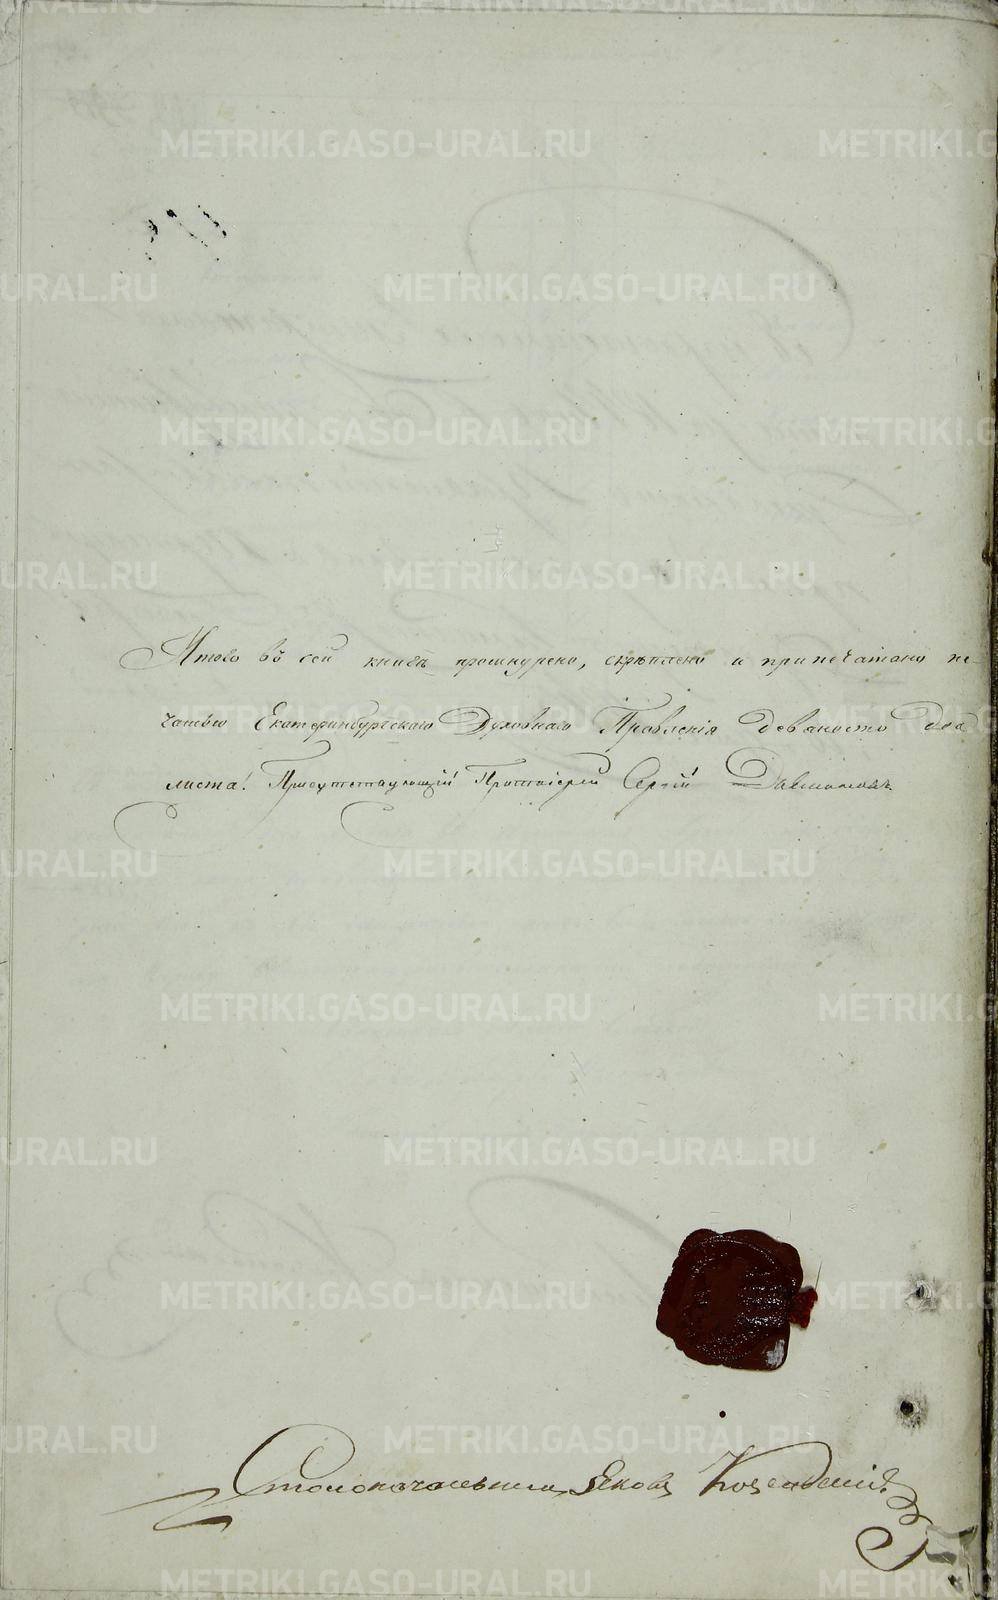 METRIKI.GASO-URAL.RU
Итого въ сей книгѣ прошнурено, скрѣплено и припечатано пе-
чатью Екатеринбургскаго Духовнаго Правленія девяносто два
листа. Присутствующій Протоіерей Сергій
Столоначальникъ Яковъ